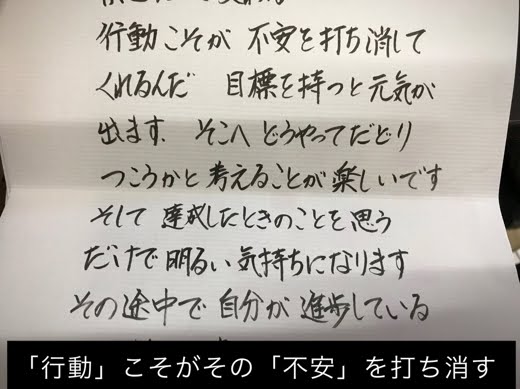 行動こそが 不安を打ち消して
くれるんだ 目標を持つと元気が
出ます. そこへ どうやってだどり
つこうかと 考えることが 楽しいです
そして 達成したときのことを 思う
だけで 明るい 気持ちになります
その途中で 自分が 進歩している
「行動」こそがその「不安」を打ち消す